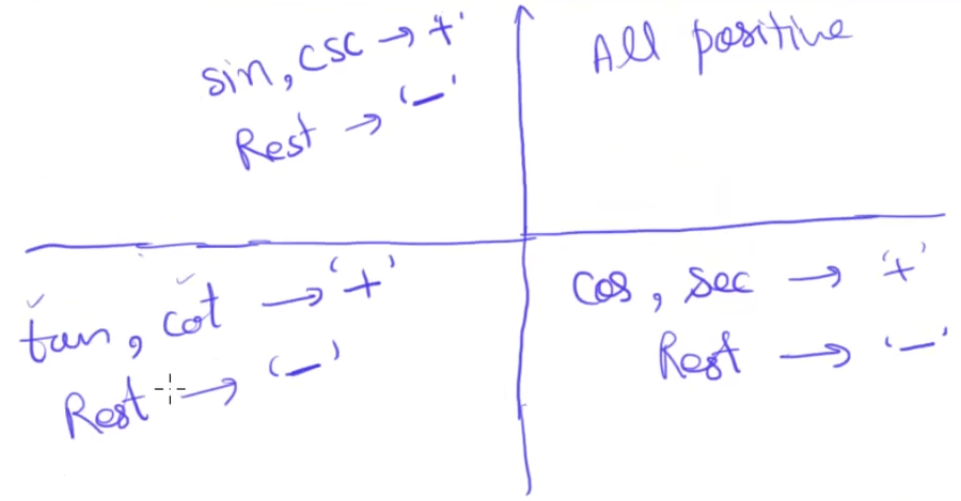 sin, csc → '+'
Rest → '–'
All positive
tan, cot → '+'
Rest → '–'
cos, sec → '+'
Rest → '–'